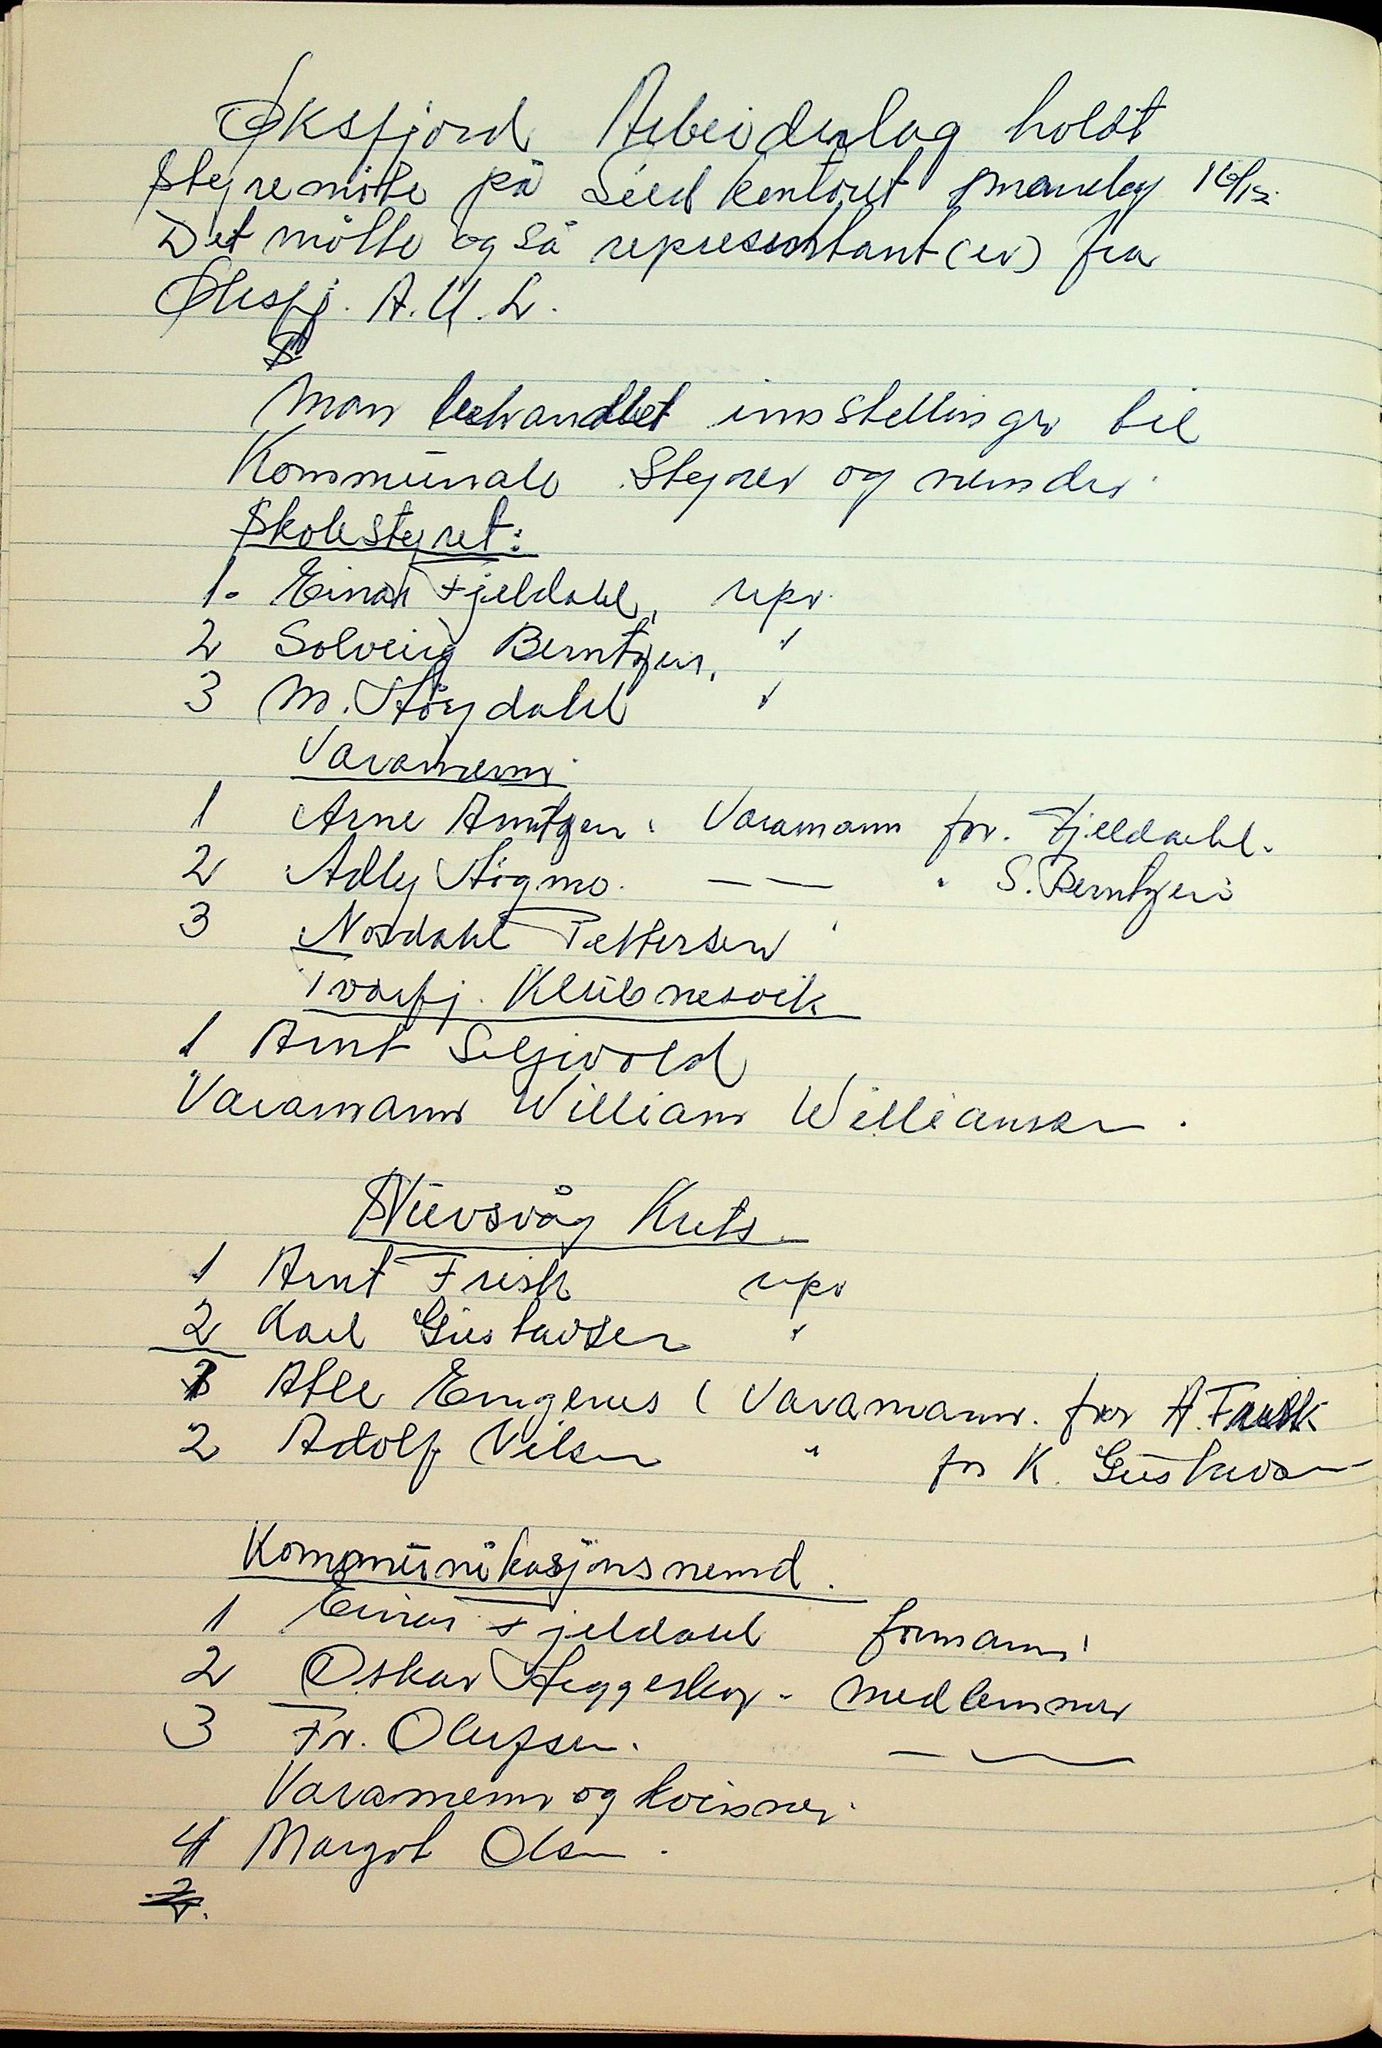 Øksfjord Arbeiderlag holdt
Styremöte på Sild kontoret mandag 16/12
Det mötte også representant(er) fra
Øksfj. A.U.L.
Man behandlet innstellinger til
Kommunale styrer og nemder.
Skolestyret:
1. Einar Fjeldahl, repr.
2 Solveig Berntzen, "
3 M. Høydahl "
Varamenn
1 Arne Arntzen. Varamann for. Fjelldahl.
2 Adly Høgmo. — — " S. Berntzen
3 Nordahl Pettersen "
Tvorfj. Klubnesvik
1 Arnt Seljevold
Varamann William Williamsen.
Nuvsvåg Krets.
1 Arnt Frisk repr
2 Karl Gustavsen "
1 Atle (Varamann. for A. Frisk
2 Adolf Nilsen " for K. Gustavsen
Kommunikasjonsnemd.
1 Einar Fjeldahl formann
2 Oskar Heggeskog. medlemmer
3 Fr. Olufsen. — —
Varamenn og kvinner.
1 Margot Olsen.
2.